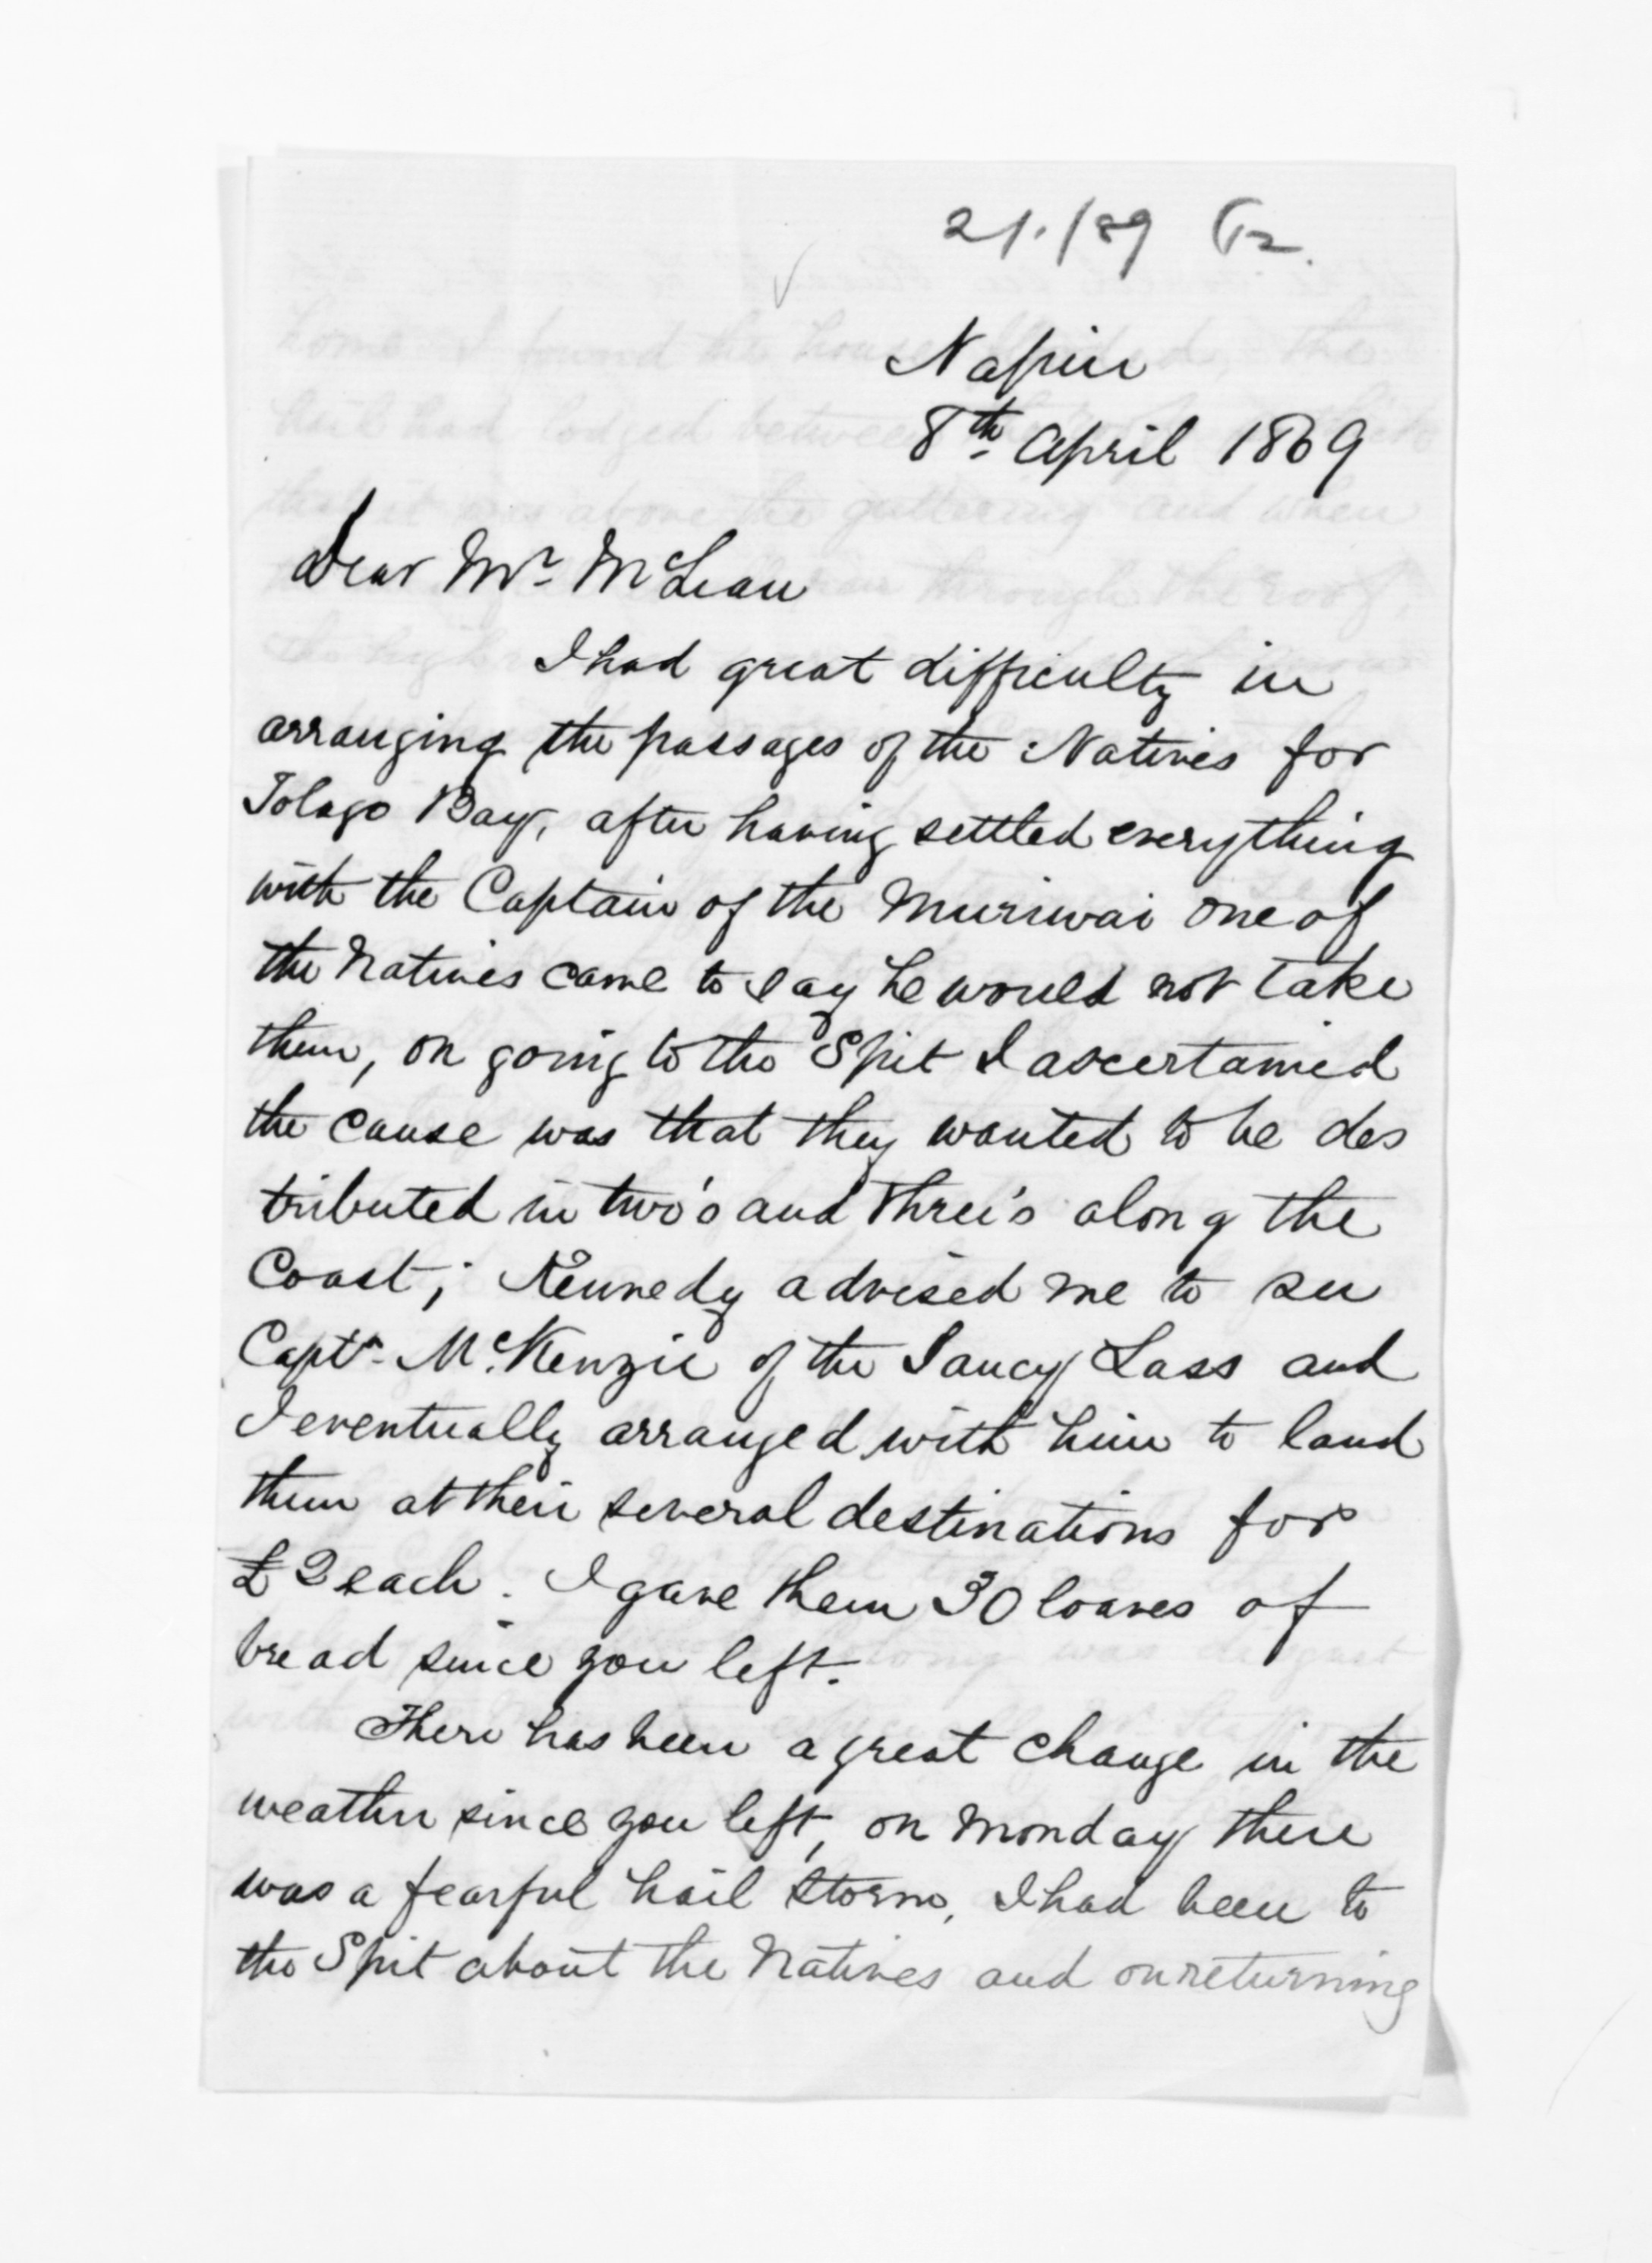 21./89
Napier
8th April 1869
Dear Mr McLean
I had great difficulty in
arranging the passages of the Natives for
Tolago Bay, after having settled everything
with the Captain of the Muriwai one of
the Natives came to say he would not take
them, on going to the Spit I ascertained
the cause was that they wanted to be des
tributed in two's and three's along the
Coast; Kennedy advised me to see
Captn McKenzie of the Saucy Lass and
I eventually arranged with him to land
them at their several destinations for
£2 each. I gave them 30 loaves of
bread since you left.
There has been a great change in the
weather since you left, on Monday there
was a fearful hail storm, I had been to
the Spit about the Natives and on returning